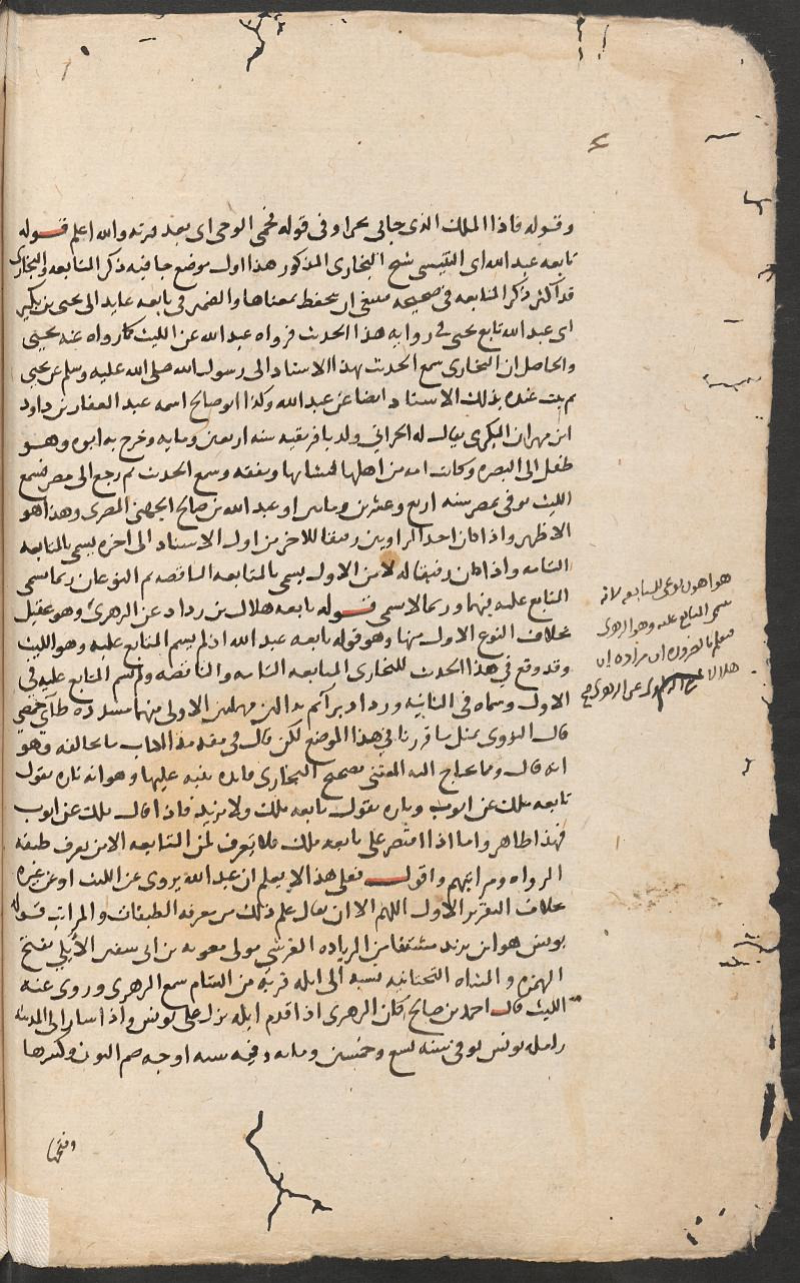 وقوله فاذا الملك الذى جانى بحرا وفى قوله فحمى الوحى اى بعد فترته والله اعلم قوله
تابعه عبد الله اى التنيسى شيخ البخارى المذكور هذا اول موضع جا فيه ذكر المتابعه والبخارى
قد اكثر ذكر المتابعه فى صحيحه فينبغى ان يحفظ معناها والضمير فى تابعه عايد الى يحيى بن بكير
اى عبد الله تابع يحيى فى روايه هذا الحديث فرواه عبد الله عن الليث كما رواه عنه يحيى
والحاصل ان البخارى سمع الحديث بهذا الاسناد الى رسول الله صلى الله عليه وسلم عن يحيى
ثم ثبت عنده بذلك الاسناد ايضا عن عبد الله وكذا ابو صالح اسمه عبد الغفار بن داود
ابن مهران البكرى يقال له الحرانى ولد بافريقيه سنه اربعين ومايه وخرج به ابوه وهو
طفل الى البصره وكانت امه من اهلها فنشا بها وتفقه وسمع الحديث ثم رجع الى مصر فسمع
الليث توفى بمصر سنه اربع وعشرين ومايتين او عبد الله بن صالح الجهنى المصرى وهذا هو
الاظهر واذا كان احد الراويين رفيقا للاخر من اول الاسناد الى اخره يسمى بالمتابعه
التامه واذا كان رفيقا له لا من الاول يسمى بالمتابعه الناقصه ثم النوعان ربما يسمى
المتابع عليه فيهما وربما لا يسمى قوله تابعه هلال بن رداد عن الزهرى وهو عقيل
بخلاف النوع الاول منها وهو قوله تابعه عبد الله اذ لم يسم المتابع عليه وهو الليث
وقد وقع فى هذا الحديث للبخارى المتابعه التامه والناقصه ولم يسم المتابع عليه فى
الاول وسماه فى الثانيه ورداد برآ ثم بدالين مهملتين الاولى منهما مشدده طآى حمصى
قال النووى بمثل ما قررنا فى هذا الموضع لكن قال فى مقدمه الكتاب ما يخالفه وهو
انه قال ومما يحتاج اليه المعتنى بصحيح البخارى فايده ننبه عليها وهو انه تاره يقول
تابعه ملك عن ايوب وتاره يقول تابعه ملك ولا يزيد فاذا قال ملك عن ايوب
فهذا ظاهر واما اذا اقتصر على تابعه ملك فلا يعرف لمن المتابعه الا من يعرف طبقه
الرواه ومراتبهم واقول فعلى هذا لا يعلم ان عبد الله يروى عن الليث او عن غيره
بخلاف التقرير الاول اللهم الا ان يقال علم ذلك من معرفه الطبقات والمراتب قوله
يونس هو ابن يزيد مشتقا من الزياده القرشى مولى معويه بن ابى سفين الأيلى بفتح
الهمزه والمثناه التحتانيه نسبه الى ايله قريه من الشام سمع الزهرى وروى عنه
الليث قال احمد بن صالح كان الزهرى اذا قدم ايله نزل على يونس واذا سار الى المدينه
زامله يونس توفى سنه تسع وخمسين ومايه وفيه سته اوجه ضم النون وكسرها
وفتحها
هو اهون نوعى المتابعه لانه
سمى المتابع عليه وهو الزهرى
فيعلم بالضروره ان مراده ان
هلالا عن الزهرى